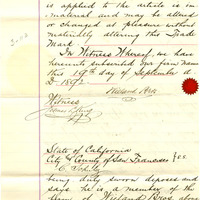 is applied to the article is im-
material and may be altered
or changed at pleasure without
materially altering this Trade
Mark
In Witness Whereof, we have
hereunto subscribed our firm name
this 19th day of September A
D. 189
Wieland Bros
Witness
State of California
City & County of San Francisco } SS
C.
being duly sworn deposes and
says he is a member of the
firm of Wieland Bros above